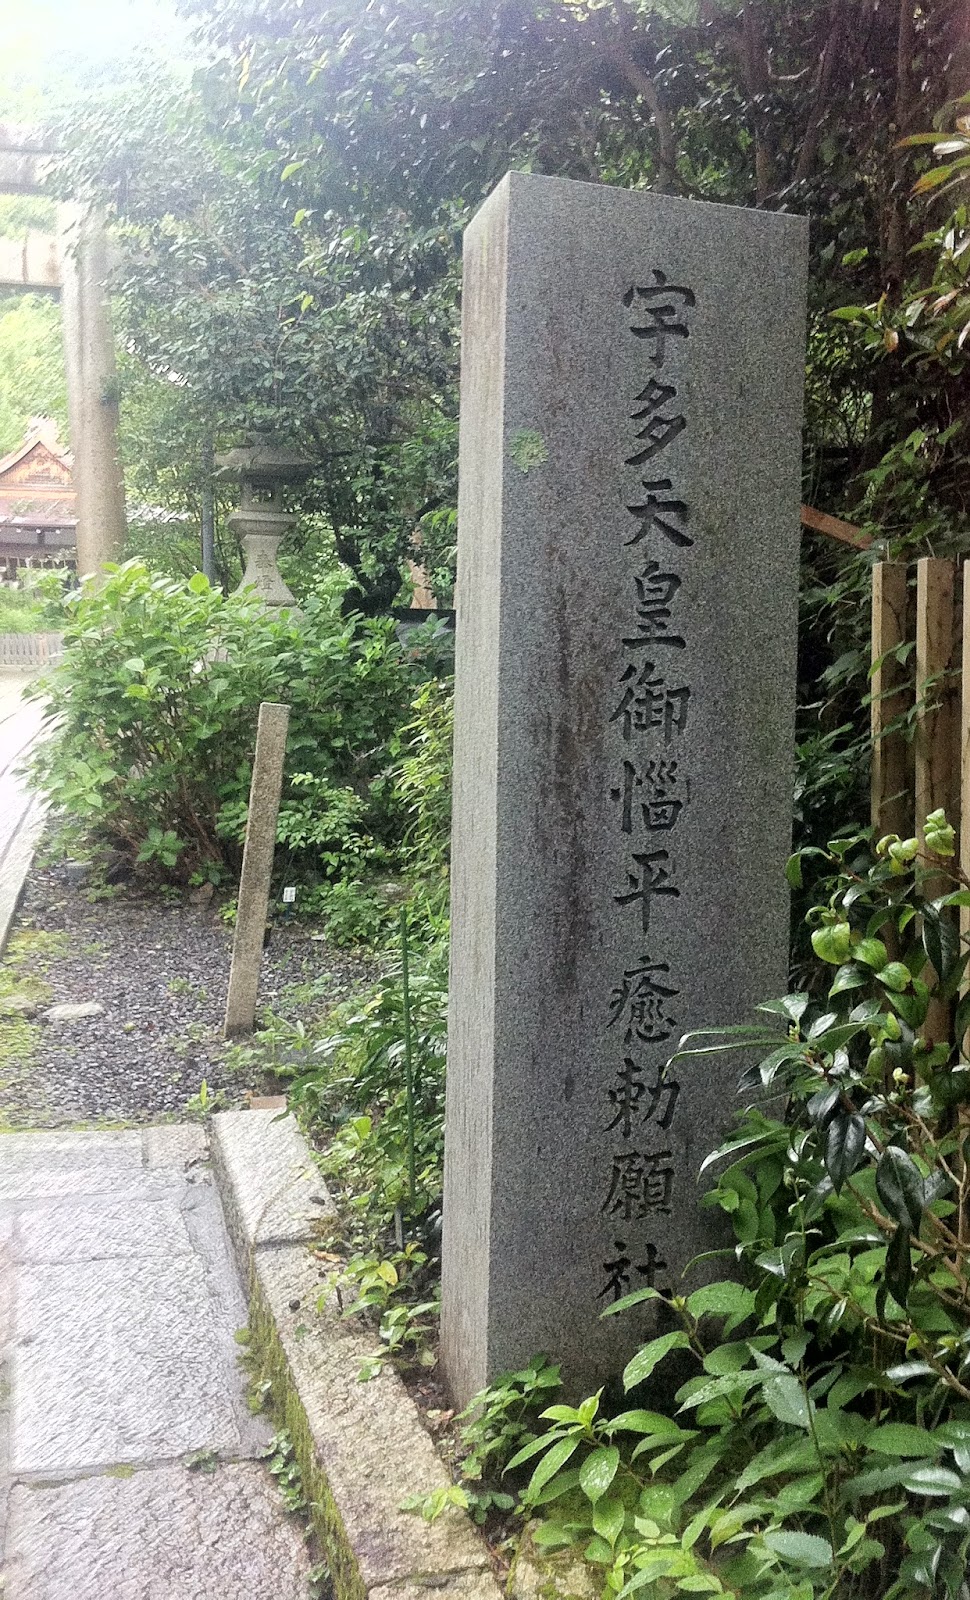 宇多天皇御惱平癒勅願社